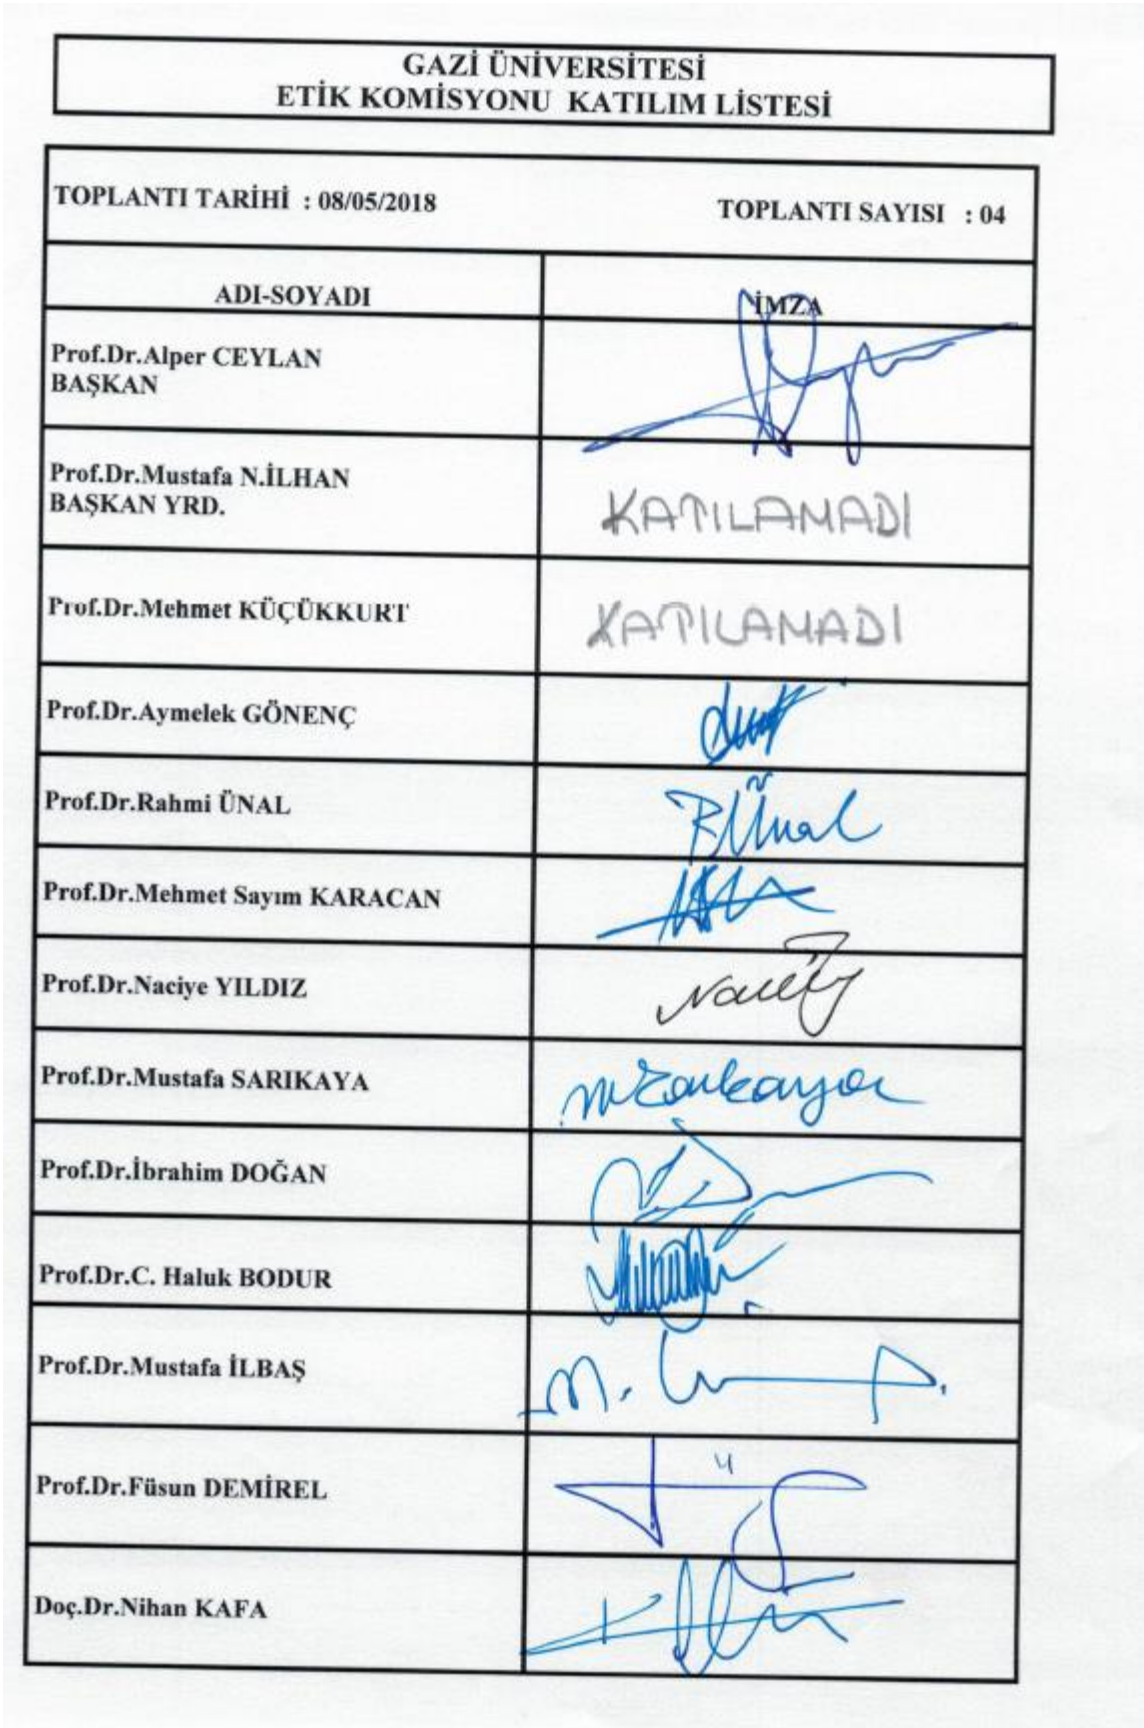 GAZİ ÜNİVERSİTESİ
ETİK KOMİSYONU KATILIM LİSTESİ
TOPLANTI TARİHİ : 08/05/2018 TOPLANTI SAYISI : 04
ADI-SOYADI İMZA
Prof.Dr.Alper CEYLAN
BAŞKAN
Prof.Dr.Mustafa N.İLHAN
BAŞKAN YRD.
KATILAMADI
Prof.Dr.Mehmet KÜÇÜKKURT KATILAMADI
Prof.Dr.Aymelek GÖNENÇ
Prof.Dr.Rahmi ÜNAL RÜnal
Prof.Dr.Mehmet Sayım KARACAN
Prof.Dr.Naciye YILDIZ
Prof.Dr.Mustafa SARIKAYA
Prof.Dr.İbrahim DOĞAN
Prof.Dr.C. Haluk BODUR
Prof.Dr.Mustafa İLBAŞ
Prof.Dr.Füsun DEMİREL
Doç.Dr.Nihan KAFA